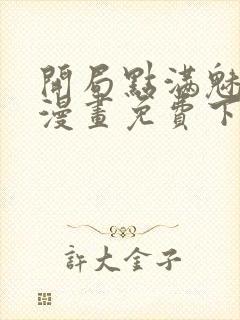 開局點滿魅
漫畫免費下
許大金子